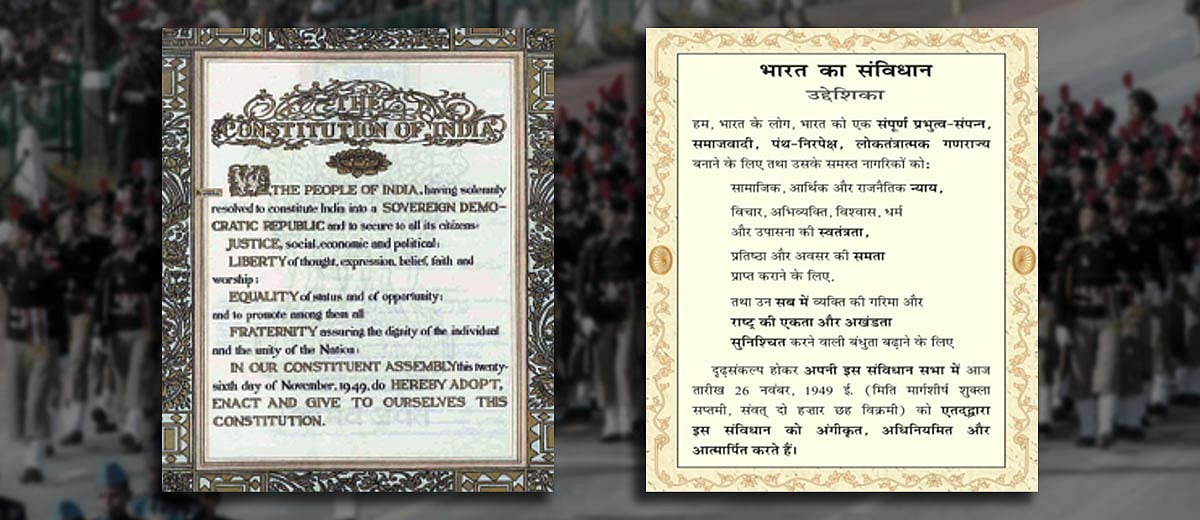 THE
CONSTITUTION OF INDIA
WE, THE PEOPLE OF INDIA, having solemnly
resolved to constitute India into a SOVEREIGN DEMO-
CRATIC REPUBLIC and to secure to all its citizens:
JUSTICE, social, economic and political;
LIBERTY of thought, expression, belief, faith and
worship;
EQUALITY of status and of opportunity;
and to promote among them all
FRATERNITY assuring the dignity of the individual
and the unity of the Nation;
IN OUR CONSTITUENT ASSEMBLY this twenty-
sixth day of November, 1949, do HEREBY ADOPT,
ENACT AND GIVE TO OURSELVES THIS
CONSTITUTION.
भारत का संविधान
उद्देशिका
हम, भारत के लोग, भारत को एक संपूर्ण प्रभुत्व-संपन्न,
समाजवादी, पंथ-निरपेक्ष, लोकतंत्रात्मक गणराज्य
बनाने के लिए तथा उसके समस्त नागरिकों को:
सामाजिक, आर्थिक और राजनैतिक न्याय,
विचार, अभिव्यक्ति, विश्वास, धर्म
और उपासना की स्वतंत्रता,
प्रतिष्ठा और अवसर की समता
प्राप्त कराने के लिए,
तथा उन सब में व्यक्ति की गरिमा और
राष्ट्र की एकता और अखंडता
सुनिश्चित करने वाली बंधुता बढ़ाने के लिए
दृढ़संकल्प होकर अपनी इस संविधान सभा में आज
तारीख 26 नवंबर, 1949 ई. (मिति मार्गशीर्ष शुक्ला
सप्तमी, संवत् दो हजार छह विक्रमी) को एतद्द्वारा
इस संविधान को अंगीकृत, अधिनियमित और
आत्मार्पित करते हैं।